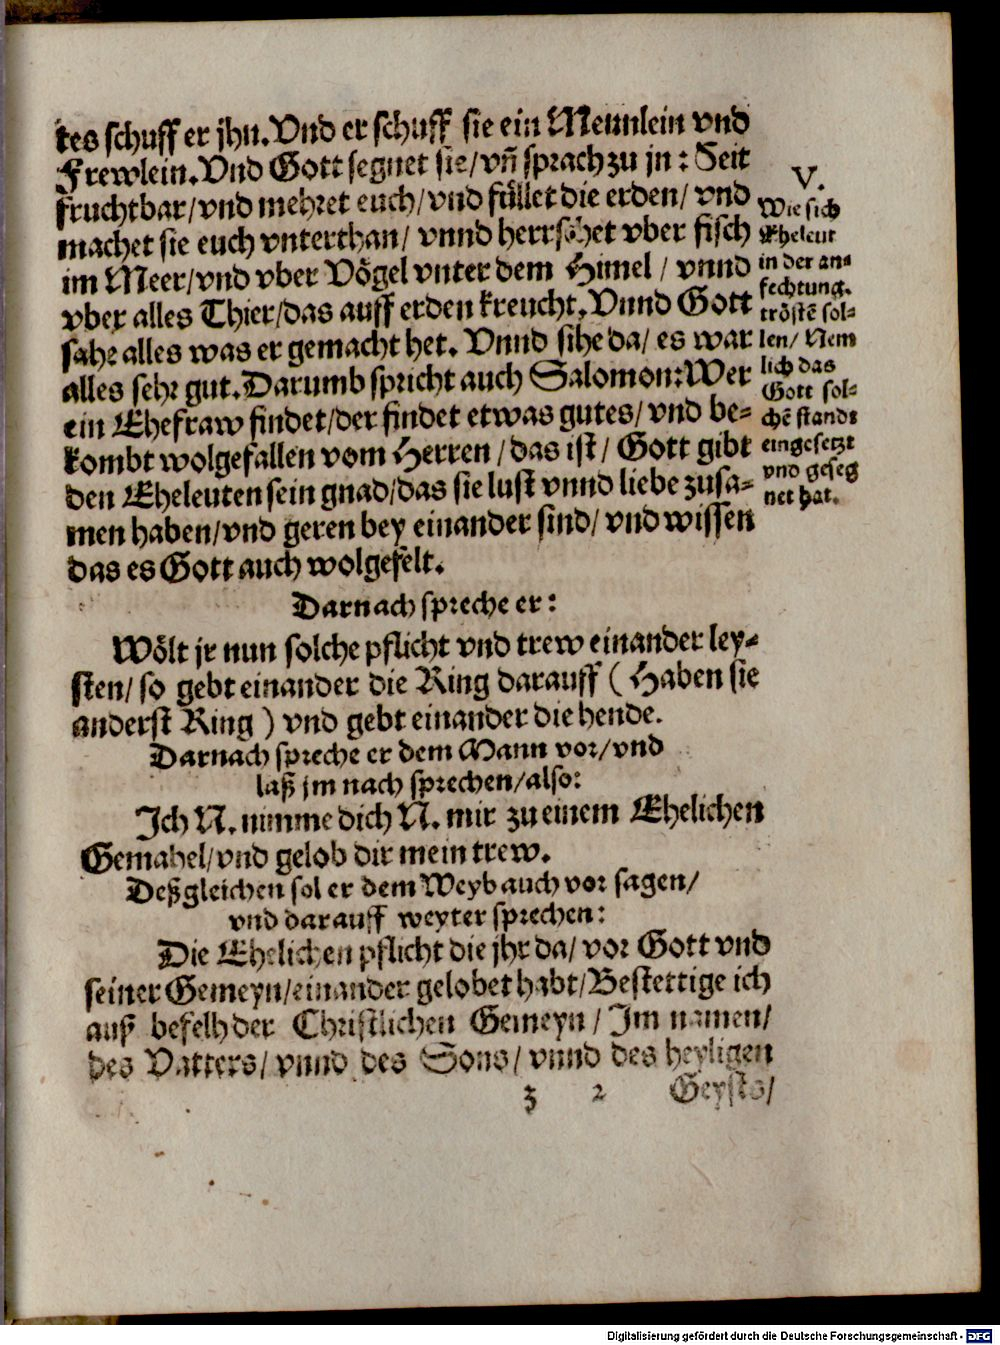 tes schuff er jhn. Vnd er schuff sie ein Mennlein vnd
Frewlein. Vnd Gott segnet sie/ vñ sprach zu jn: Seit
fruchtbar/ vnd mehret euch/ vnd füllet die erden/ vnd
machet sie euch vnterthan/ vnnd herrschet vber fisch
im Meer/ vnd vber Vögel vnter dem Himel/ vnnd
vber alles Thier/ das auff erden kreucht. Vnnd Gott
sahe alles was er gemacht het. Vnnd sihe da/ es war
alles sehr gut. Darumb spricht auch Salomon: Wer
ein Ehefraw findet/ der findet etwas gutes/ vnd be-
kombt wolgefallen vom Herren/ das ist/ Gott gibt
den Eheleuten sein gnad/ das sie lust vnnd liebe zusa-
men haben/ vnd geren bey einander sind/ vnd wissen
das es Gott auch wolgefelt.
V.
Wie sich
Eheleut
in der an-
fechtung.
tröstē sol-
len/ Nem
lich das
Gott sol-
chē stands
eingesetzt
vnd geseg
net hat.
Darnach spreche er:
Wölt jr nun solche pflicht vnd trew einander ley-
sten/ so gebt einander die Ring darauff (Haben sie
anderst Ring) vnd gebt einander die hende.
Darnach spreche er dem Mann vor/ vnd
laß jm nach sprechen/ also:
Ich N. nimme dich N. mir zu einem Ehelichen
Gemahel/ vnd gelob dir mein trew.
Deßgleichen sol er dem Weyb auch vor sagen/
vnd darauff weyter sprechen:
Die Ehelichen pflicht die jhr da/ vor Gott vnd
seiner Gemeyn/ einander gelobet habt/ Bestettige ich
auß befelh der Christlichen Gemeyn/ Im namen/
des Vatters/ vnnd des Sons/ vnnd des heyligen
z 2 Geysts/
Digitalisierung gefördert durch die Deutsche Forschungsgemeinschaft - DFG